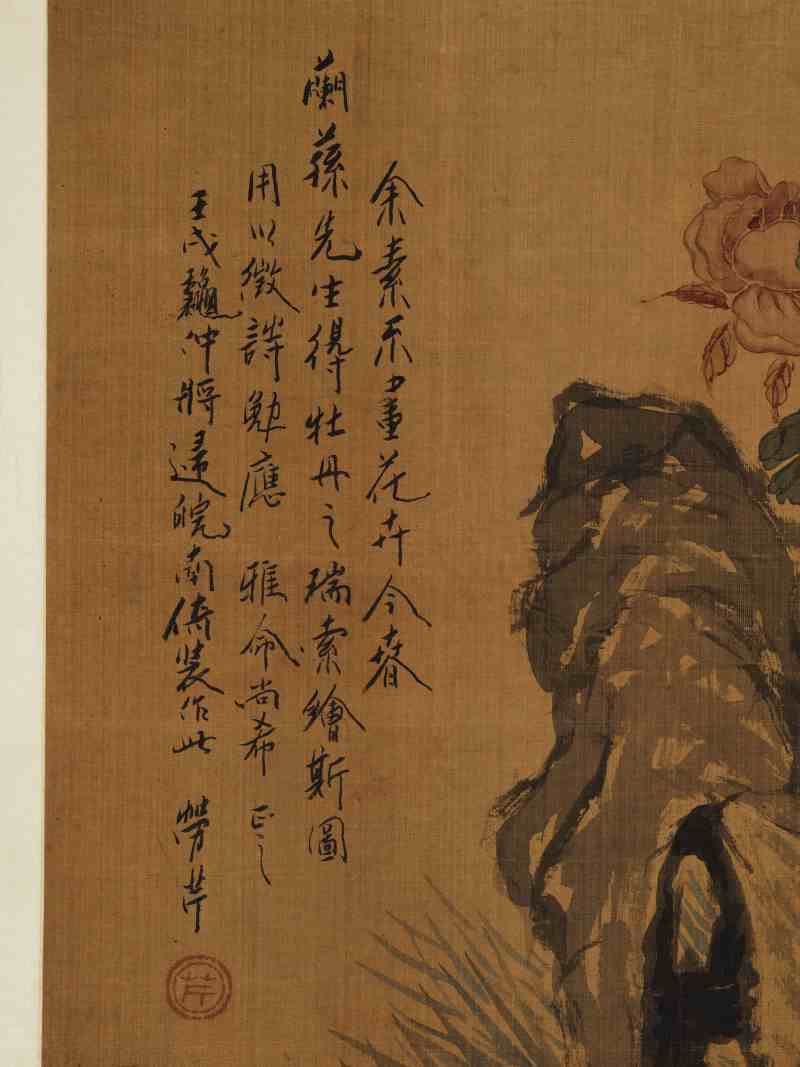 余素不畫花卉今春
蘭蓀先生得牡丹之瑞索繪斯圖
用以徵詩勉應 雅命尚希 正之
壬戌龝仲將歸皖南倚裝作此 勞芹
芹